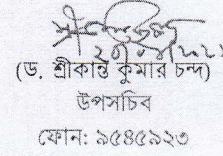 (ড. শ্রীকান্ত কুমার চন্দ)
উপসচিব
ফোন: ৯৫৪৫৯২৩